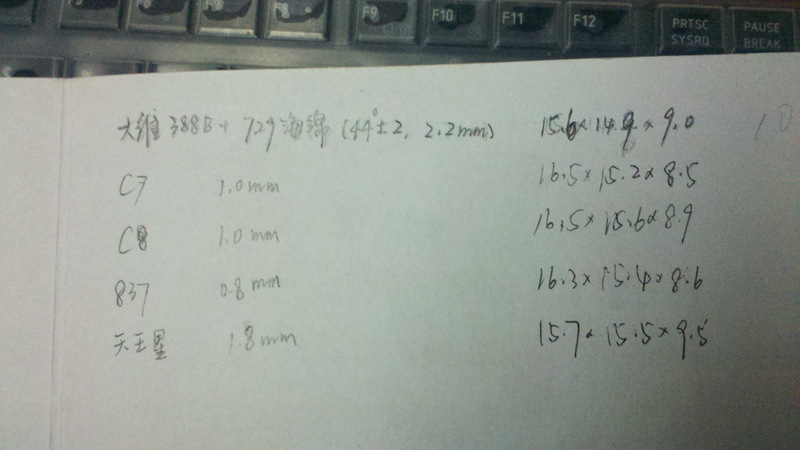 F7
F8
F9
F10
F11
F12
PRTSC
SYSRQ
PAUSE
BREAK
大维388B+729海绵(44°±2, 2.2mm) 15.6×14.9×9.0 10
C7 1.0mm 16.5×15.2×8.5
C8 1.0mm 16.5×15.6×8.9
837 0.8mm 16.3×15.4×8.6
天王星 1.8mm 15.7×15.5×9.5